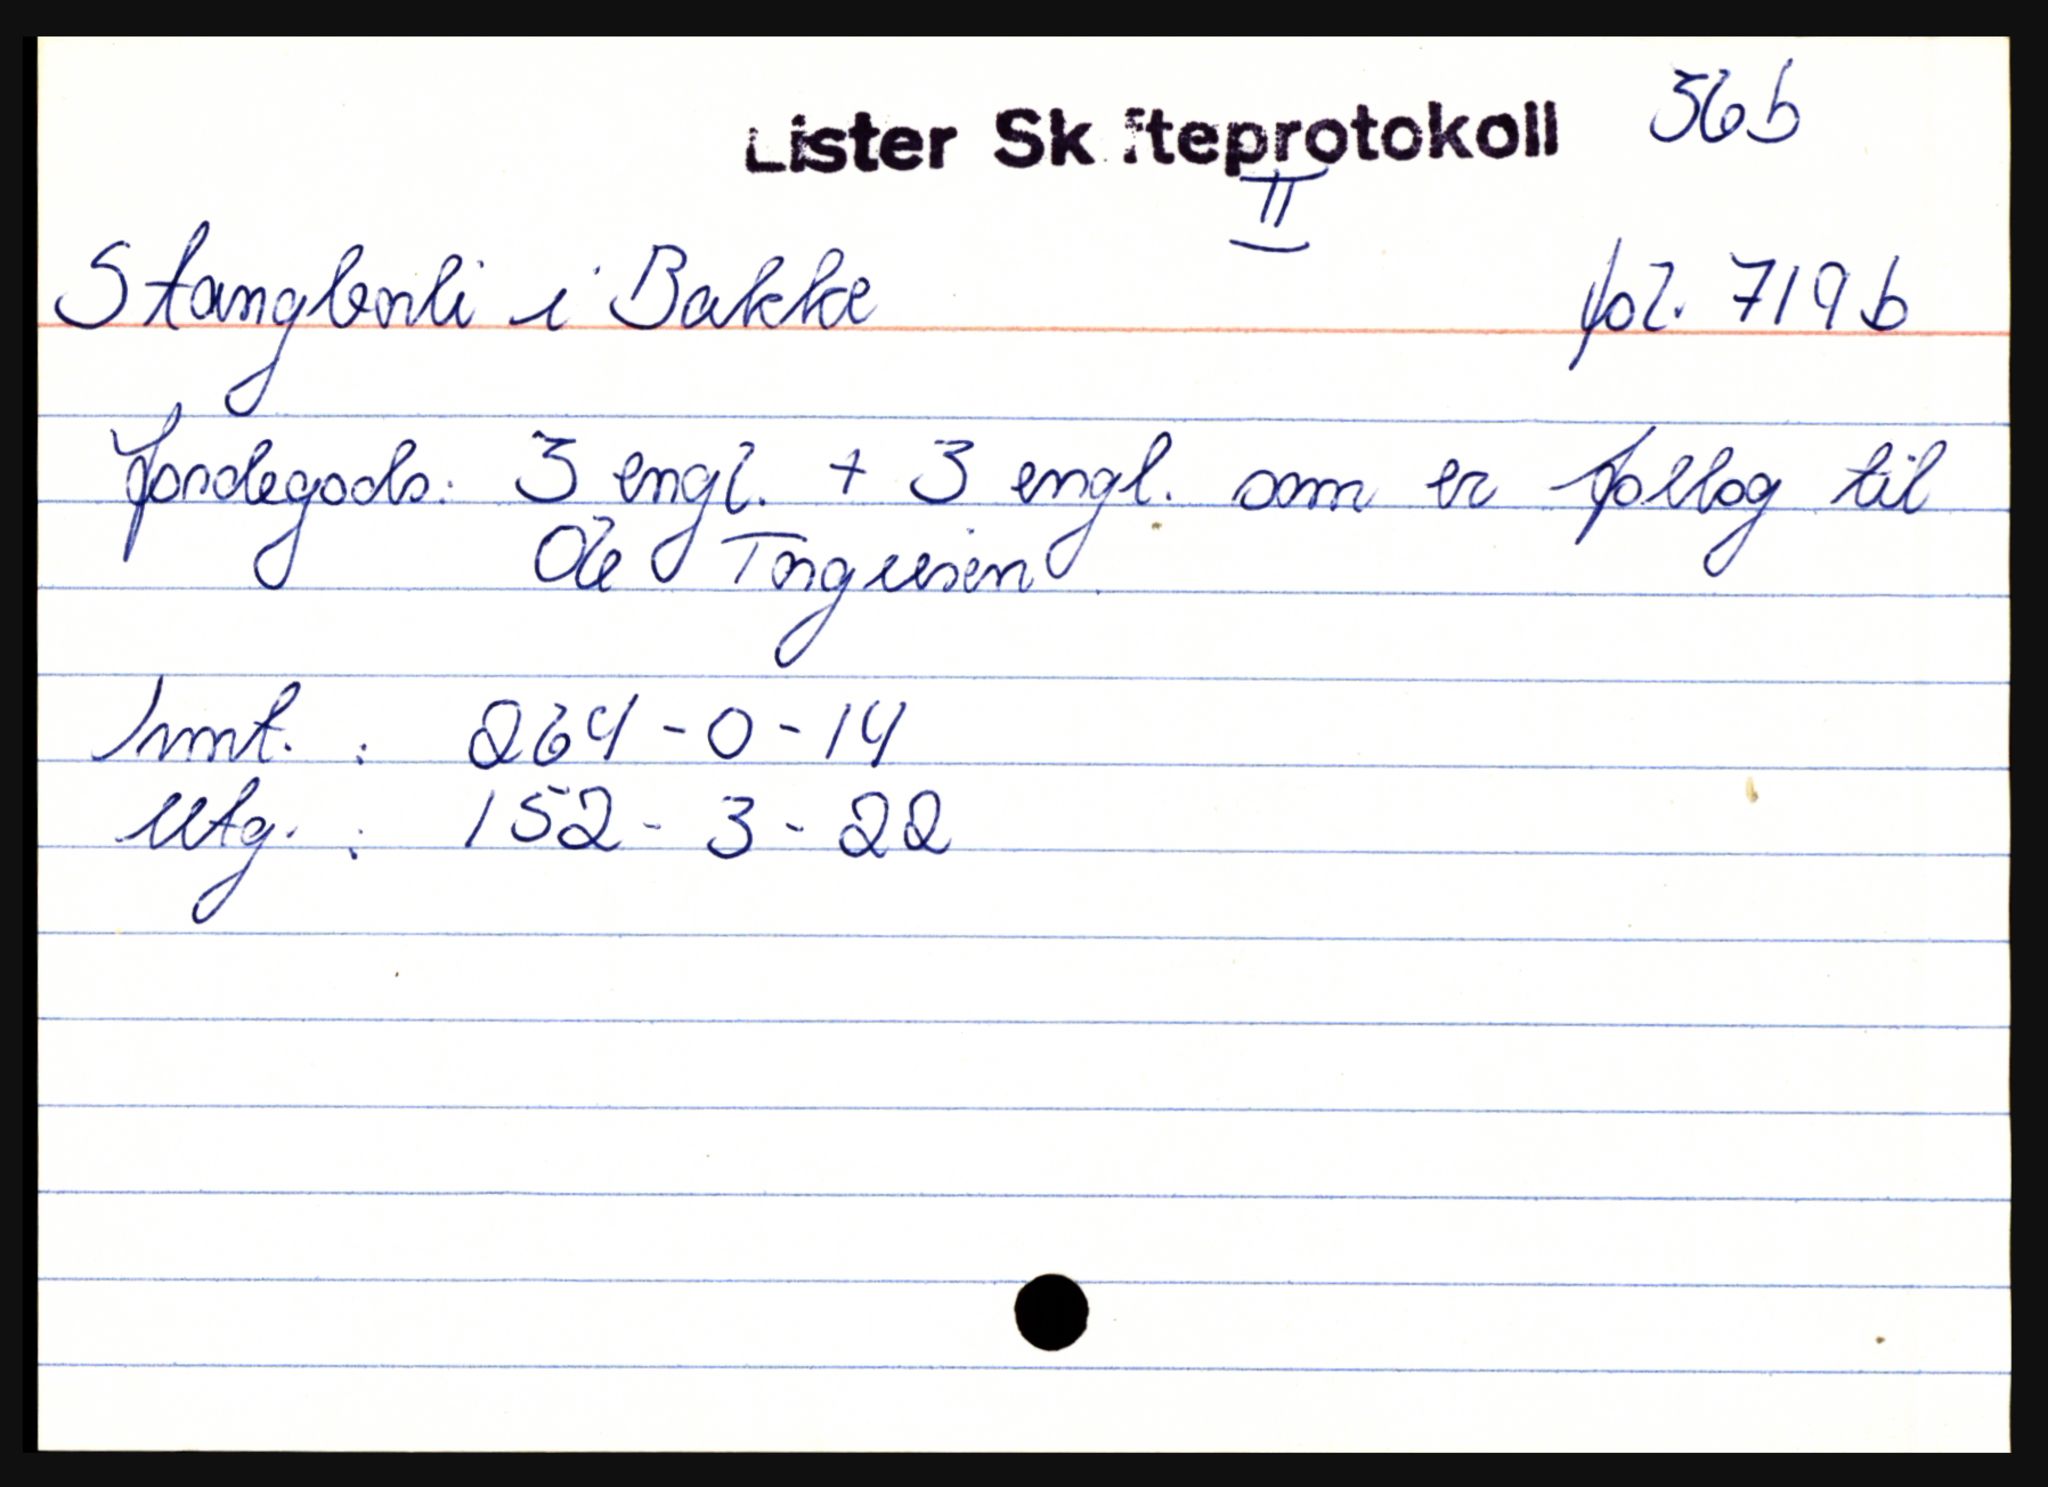 Lister Skifteprotokoll 36b
II
Stangborli i Bakke fol. 719b
Jordegods: 3 engl. + 3 engl. som er follog til
Ole Torguesen
Innt. : 264-0-14
Utg. : 152-3-22